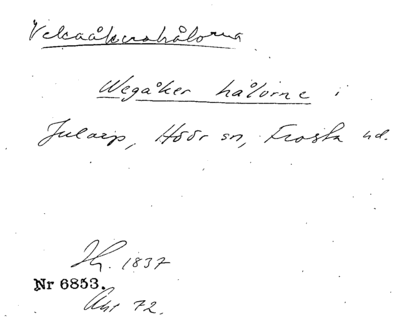 Vekaåkershålorna
Wegåker hålorne i
Jularp, Höör sn, Frosta hd.
1837
Nr 6853.
Akt 72.